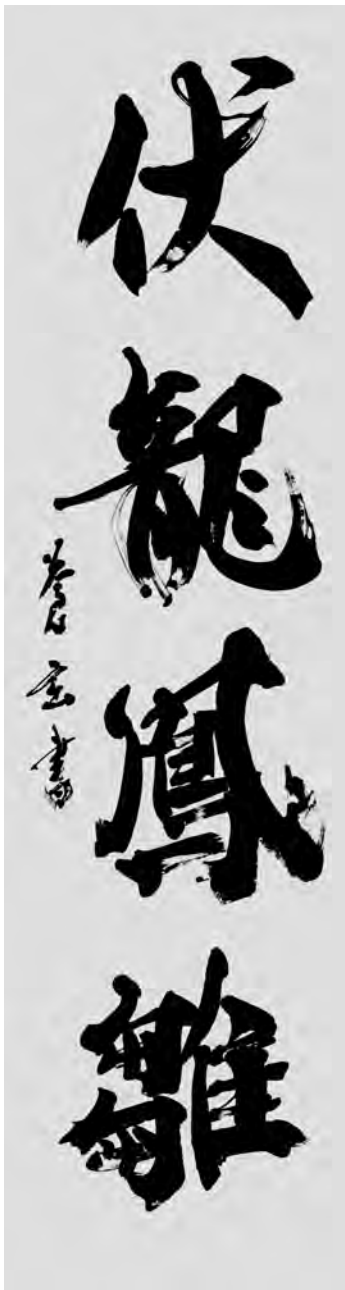 伏龍鳳雛
書